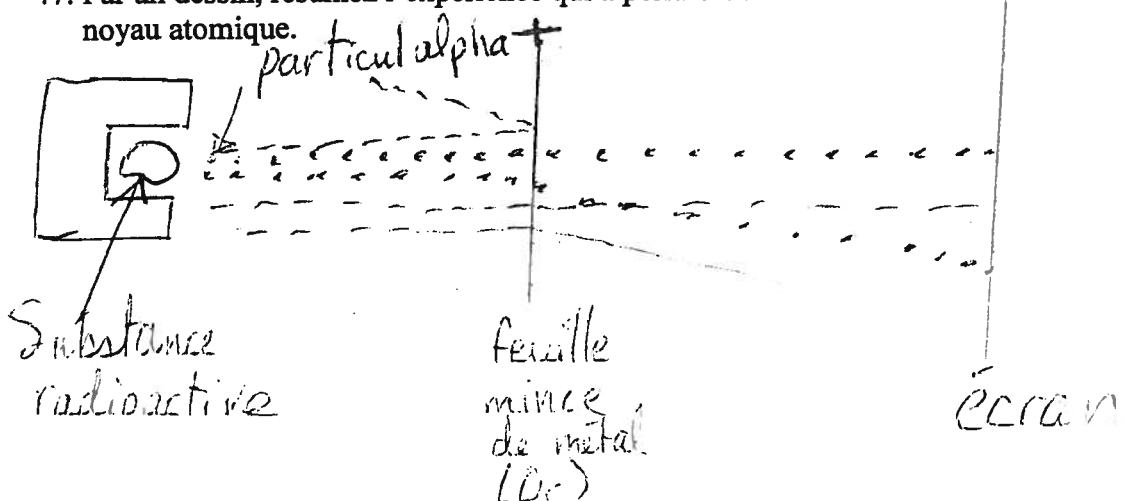 noyau atomique.
particul alpha
Substance
radioactive
feuille
mince
de métal
(Or)
écran